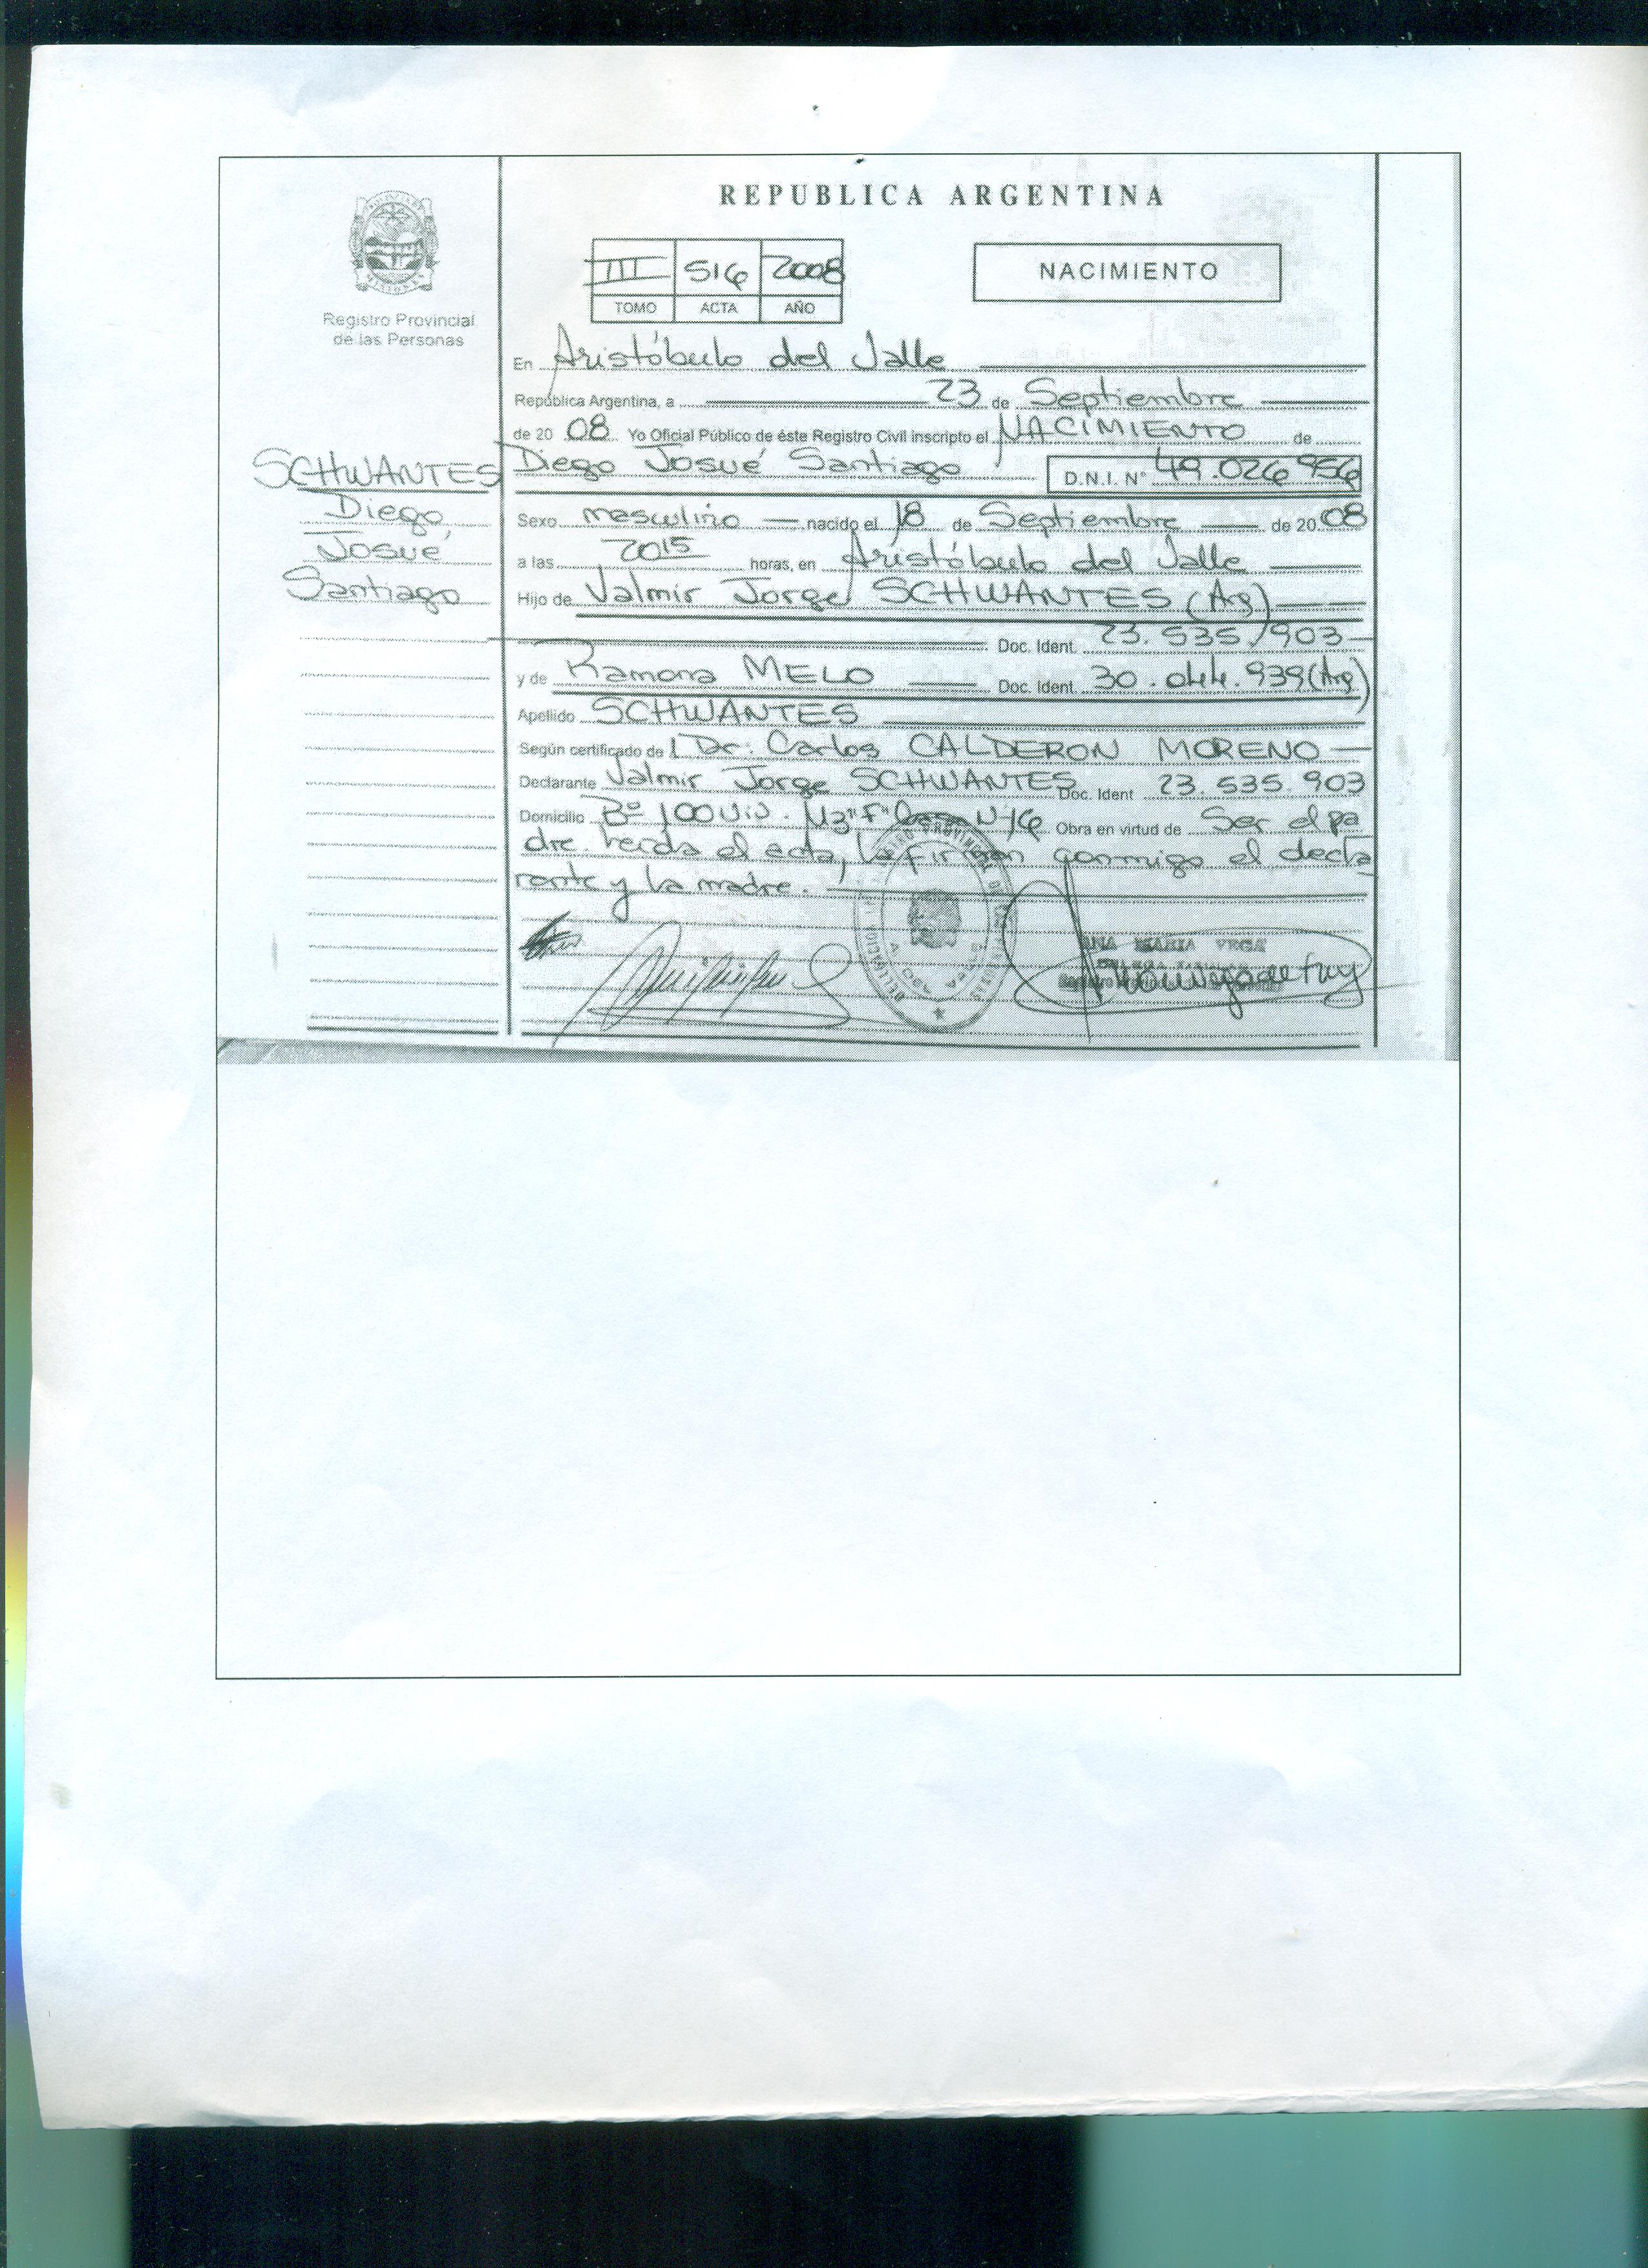 REPUBLICA ARGENTINA
III 516 2008
TOMO ACTA AÑO
NACIMIENTO
Registro Provincial
de las Personas
En Aristóbulo del Valle
República Argentina, a 23 de Septiembre
de 20 08 Yo Oficial Público de éste Registro Civil inscripto el NACIMIENTO de
SCHWANTES
Diego
Josué
Santiago
Diego Josué Santiago D.N.I. N° 49.026 956
Sexo masculino nacido el 18 de Septiembre de 20 08
a las 2015 horas, en Aristóbulo del Valle
Hijo de Valmir Jorge SCHWANTES (Arg)
Doc. Ident. 23.535.903
y de Ramona MELO Doc. Ident. 30. .939 (Arg)
Apellido SCHWANTES
Según certificado de l Dr. Carlos CALDERON MORENO
Declarante Valmir Jorge SCHWANTES Doc. Ident 23.535.903
Domicilio B° 100 Viv. Mz "F" Casa N°16 Obra en virtud de Ser el pa
dre. leida el acta, la firman conmigo el decla
rante y la madre.
ANA MARIA VEGA